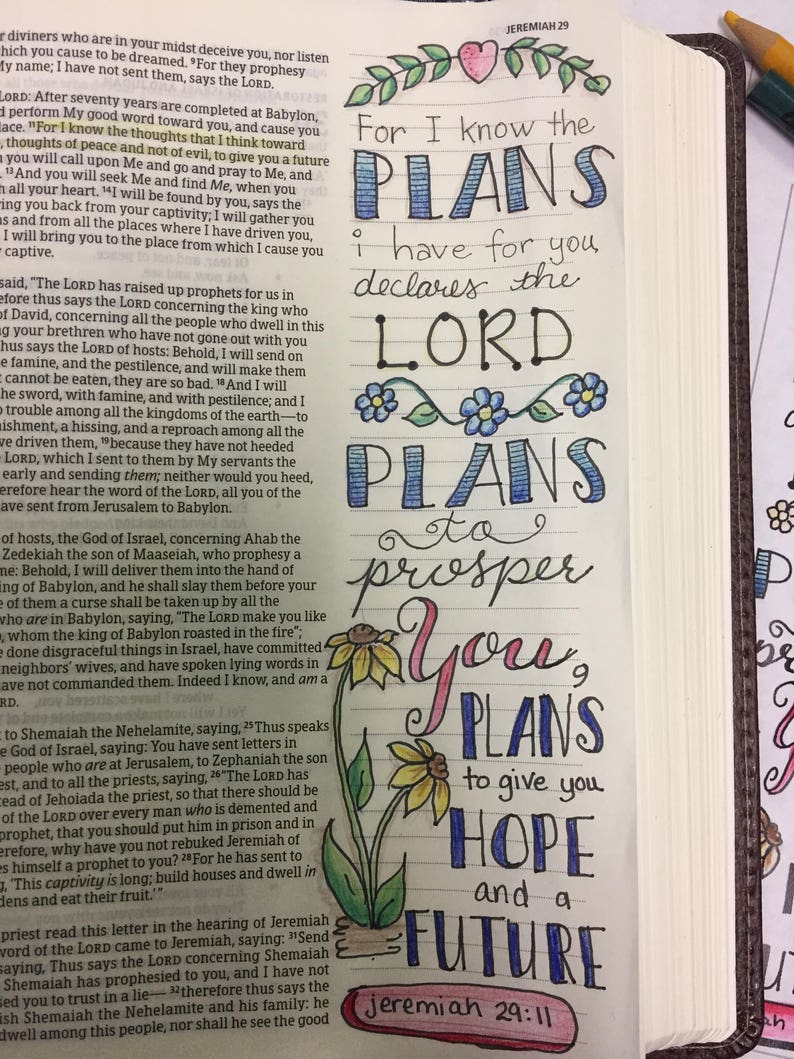 JEREMIAH 29
r diviners who are in your midst deceive you, nor listen
hich you cause to be dreamed. ⁹For they prophesy
My name; I have not sent them, says the LORD.
LORD: After seventy years are completed at Babylon,
d perform My good word toward you, and cause you
lace. ¹¹For I know the thoughts that I think toward
, thoughts of peace and not of evil, to give you a future
n you will call upon Me and go and pray to Me, and
. ¹³And you will seek Me and find Me, when you
h all your heart. ¹⁴I will be found by you, says the
ring you back from your captivity; I will gather you
ns and from all the places where I have driven you,
I will bring you to the place from which I cause you
y captive.
said, “The LORD has raised up prophets for us in
efore thus says the LORD concerning the king who
of David, concerning all the people who dwell in this
g your brethren who have not gone out with you
hus says the LORD of hosts: Behold, I will send on
e famine, and the pestilence, and will make them
t cannot be eaten, they are so bad. ¹⁸And I will
he sword, with famine, and with pestilence; and I
o trouble among all the kingdoms of the earth—to
nishment, a hissing, and a reproach among all the
ve driven them, ¹⁹because they have not heeded
LORD, which I sent to them by My servants the
early and sending them; neither would you heed,
erefore hear the word of the LORD, all you of the
ave sent from Jerusalem to Babylon.
of hosts, the God of Israel, concerning Ahab the
Zedekiah the son of Maaseiah, who prophesy a
me: Behold, I will deliver them into the hand of
ing of Babylon, and he shall slay them before your
e of them a curse shall be taken up by all the
who are in Babylon, saying, “The LORD make you like
, whom the king of Babylon roasted in the fire”;
e done disgraceful things in Israel, have committed
neighbors’ wives, and have spoken lying words in
ave not commanded them. Indeed I know, and am a
RD.
to Shemaiah the Nehelamite, saying, ²⁵Thus speaks
e God of Israel, saying: You have sent letters in
people who are at Jerusalem, to Zephaniah the son
est, and to all the priests, saying, ²⁶“The LORD has
tead of Jehoiada the priest, so that there should be
of the LORD over every man who is demented and
prophet, that you should put him in prison and in
erefore, why have you not rebuked Jeremiah of
es himself a prophet to you? ²⁸For he has sent to
g, ‘This captivity is long; build houses and dwell in
dens and eat their fruit.’”
priest read this letter in the hearing of Jeremiah
word of the LORD came to Jeremiah, saying: ³¹Send
saying, Thus says the LORD concerning Shemaiah
Shemaiah has prophesied to you, and I have not
sed you to trust in a lie— ³²therefore thus says the
ish Shemaiah the Nehelamite and his family: he
dwell among this people, nor shall he see the good
For I know the
PLANS
i have for you
declares the
LORD
PLANS
to
prosper
You,
PLANS
to give you
HOPE
and a
FUTURE
jeremiah 29:11